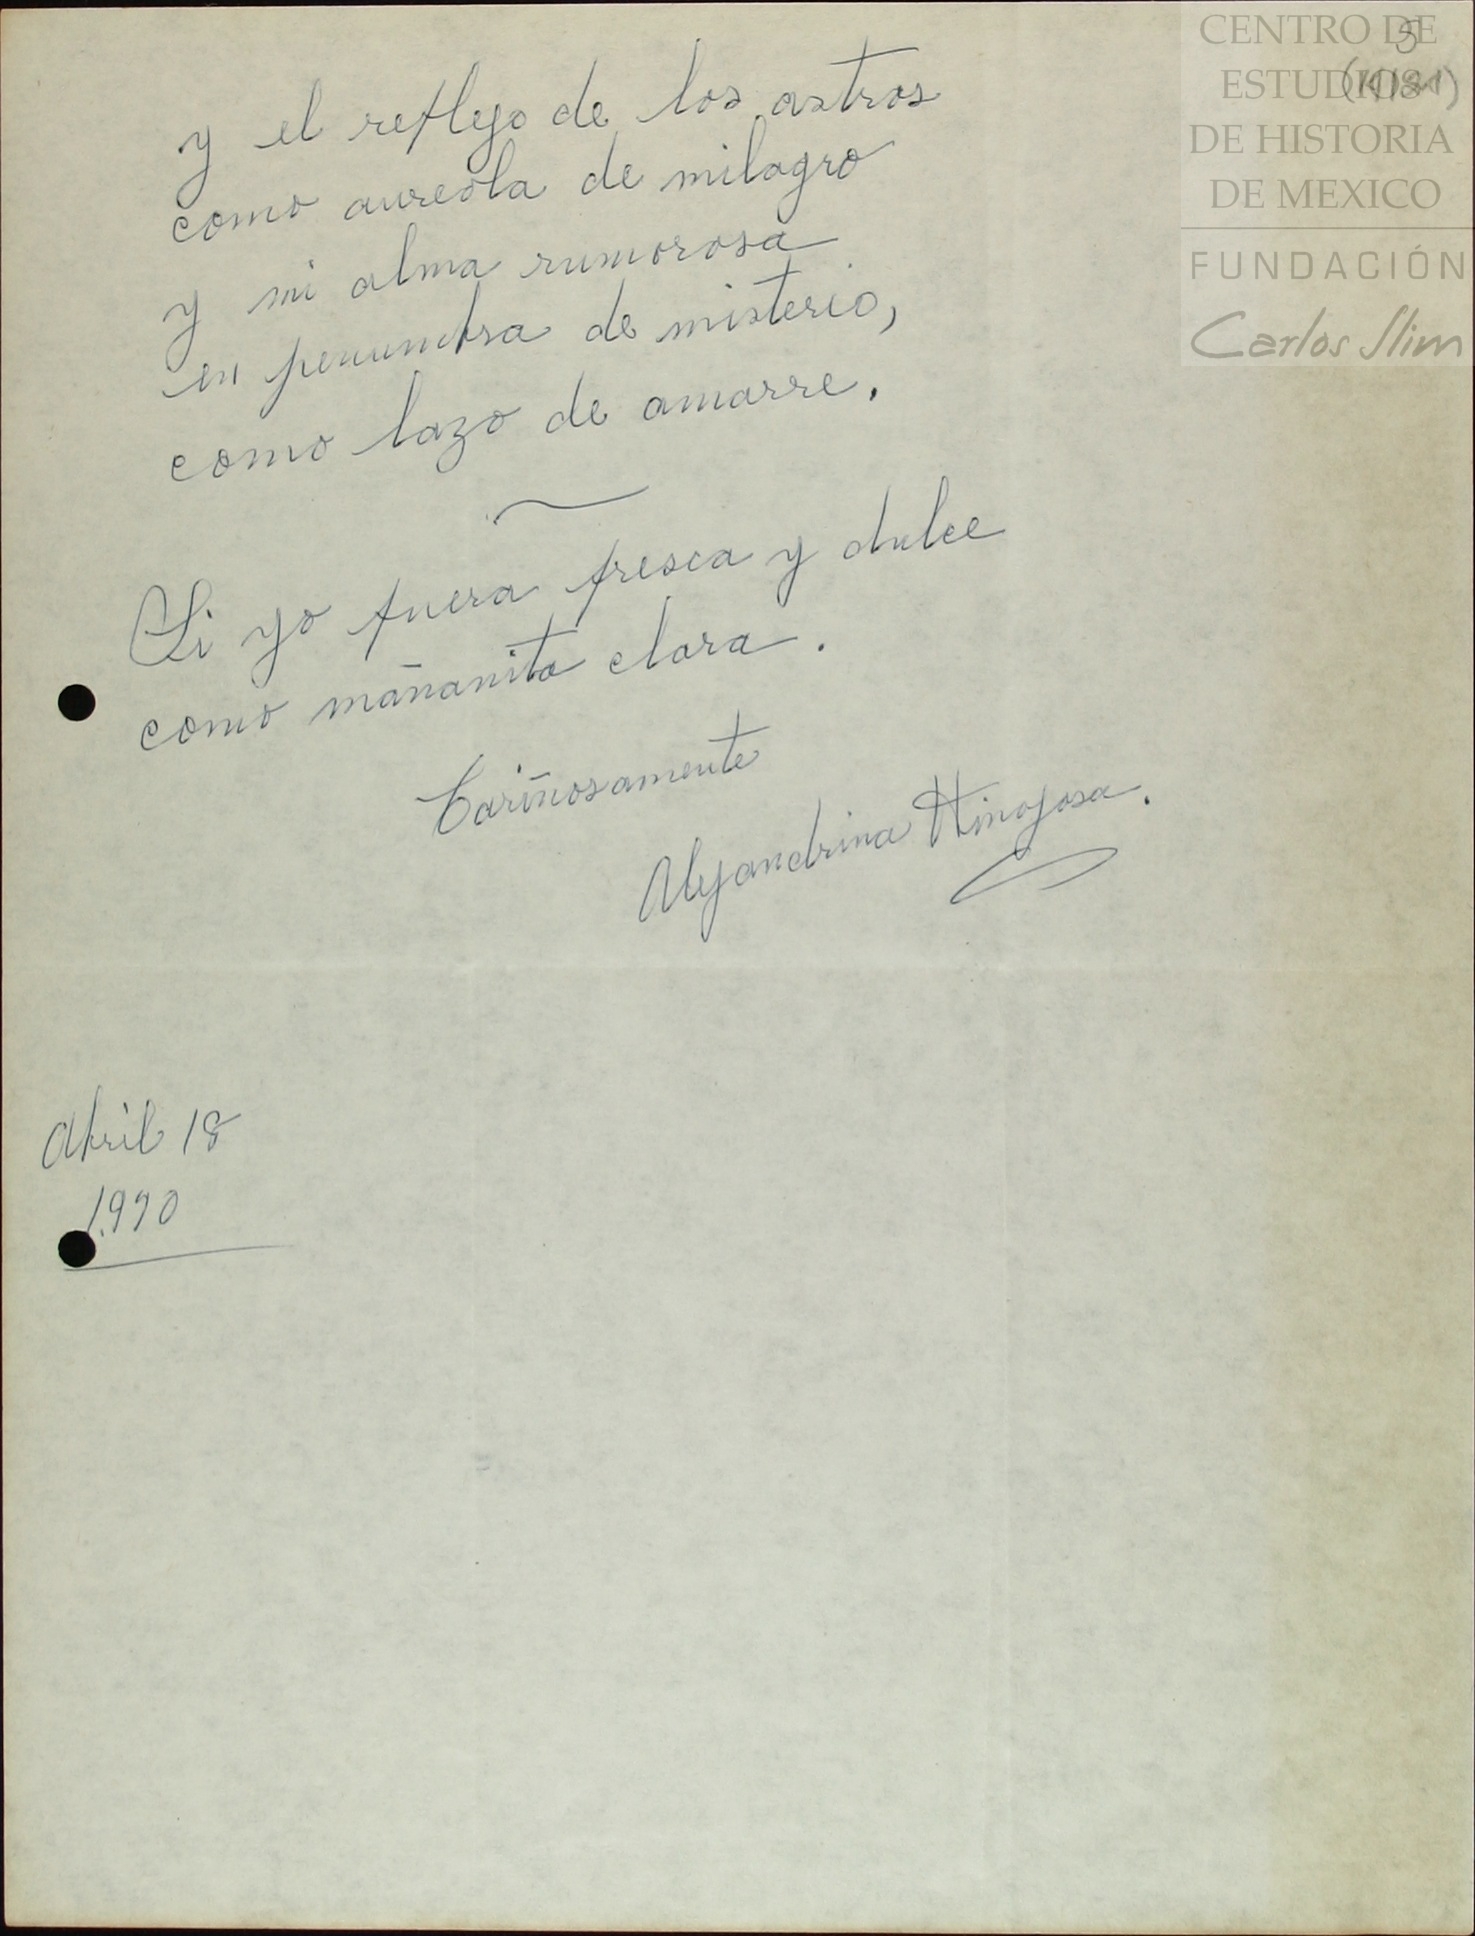 CENTRO DE
ESTUDIOS
DE HISTORIA
DE MEXICO
FUNDACIÓN
Carlos Slim
5
y el reflejo de los astros
como aureola de milagro
y mi alma rumorosa
en penumbra de misterio,
como lazo de amarre.
Si yo fuera fresca y dulce
como mañanita clara.
Cariñosamente
Alejandrina Hinojosa.
Abril 18
1.970